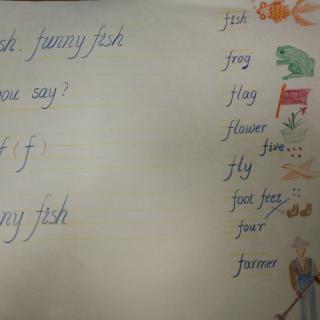 sh. funny fish
you say?
f (f)
ny fish
fish
frog
flag
flower
five
fly
foot feet
four
farmer